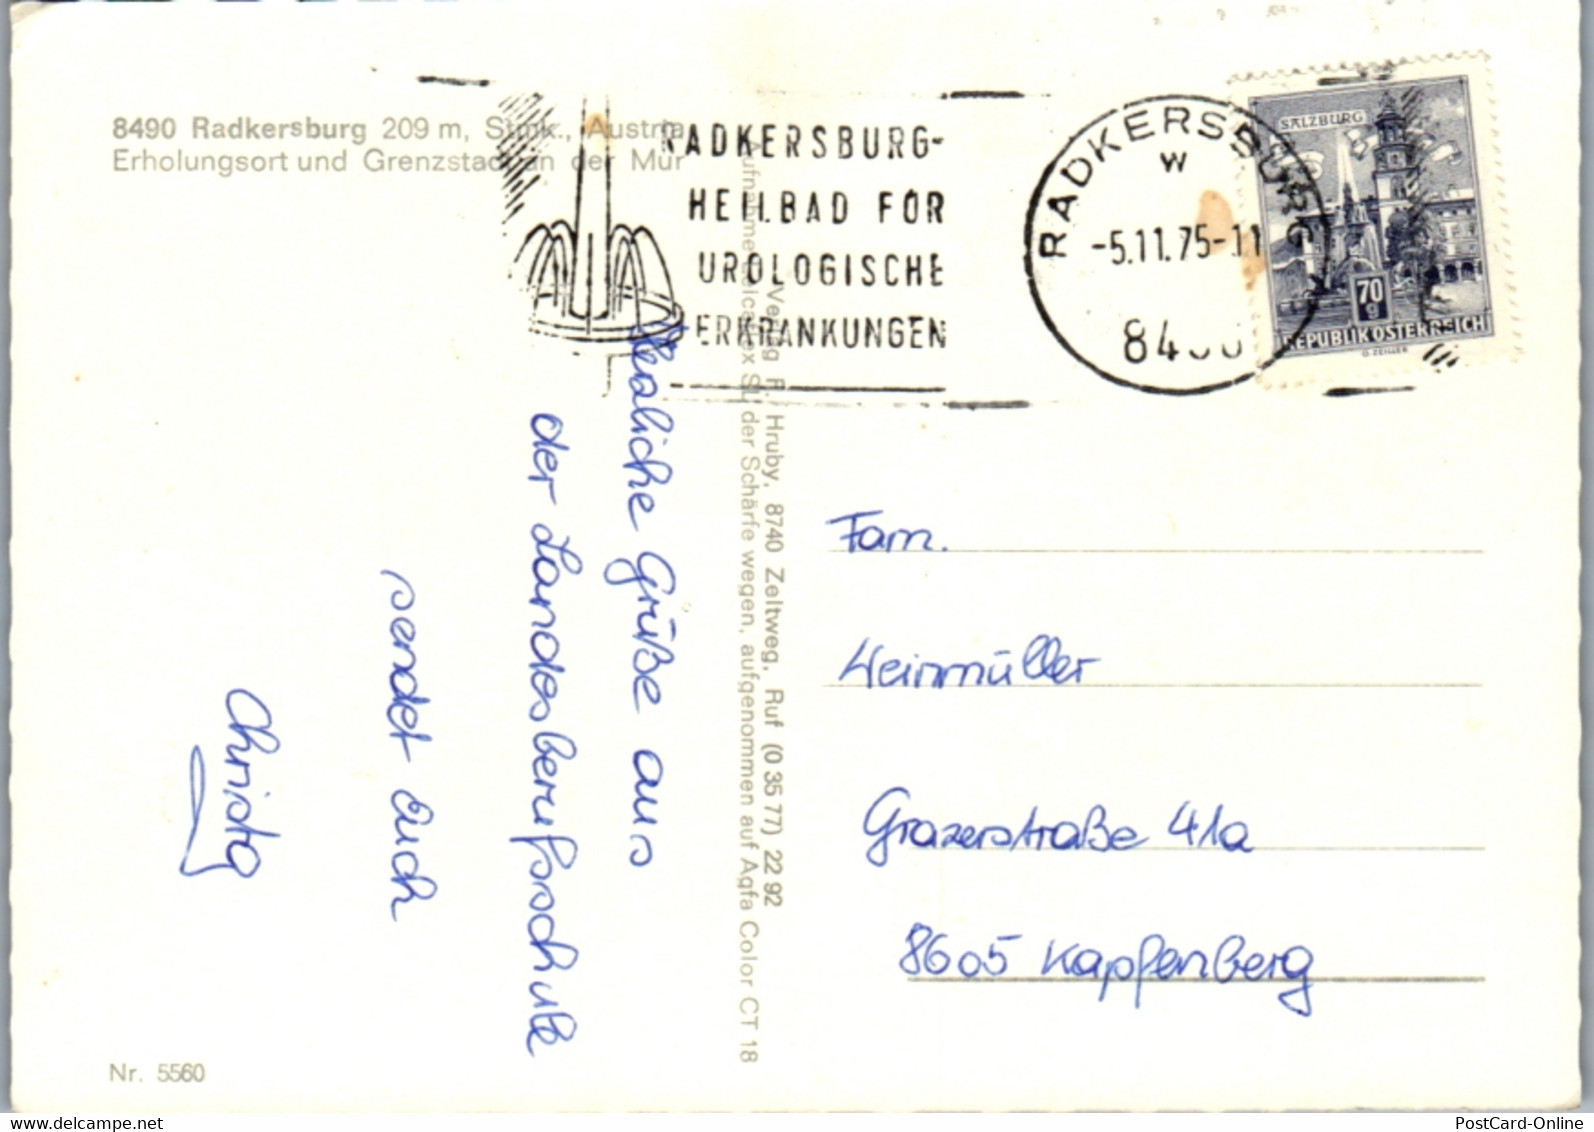 8490 Radkersburg 209 m, Stmk., Austria
Erholungsort und Grenzstadt an der Mur
RADKERSBURG-
HEILBAD FÜR
UROLOGISCHE
ERKRANKUNGEN
RADKERSBURG
W
-5.11.75-11
SALZBURG
70
g
REPUBLIK OSTERREICH
O. ZEILLER
Herzliche Grüße aus
der Landesberufsschule
sendet Euch
Christa
Verlag F. Hruby, 8740 Zeltweg, Ruf (0 35 77) 22 92
Aufnahme: der Schärfe wegen, aufgenommen auf Agfa Color CT 18
Fam.
Weinmüller
Grazerstraße 41a
8605 Kapfenberg
Nr. 5560
www.delcampe.net
PostCard-Online